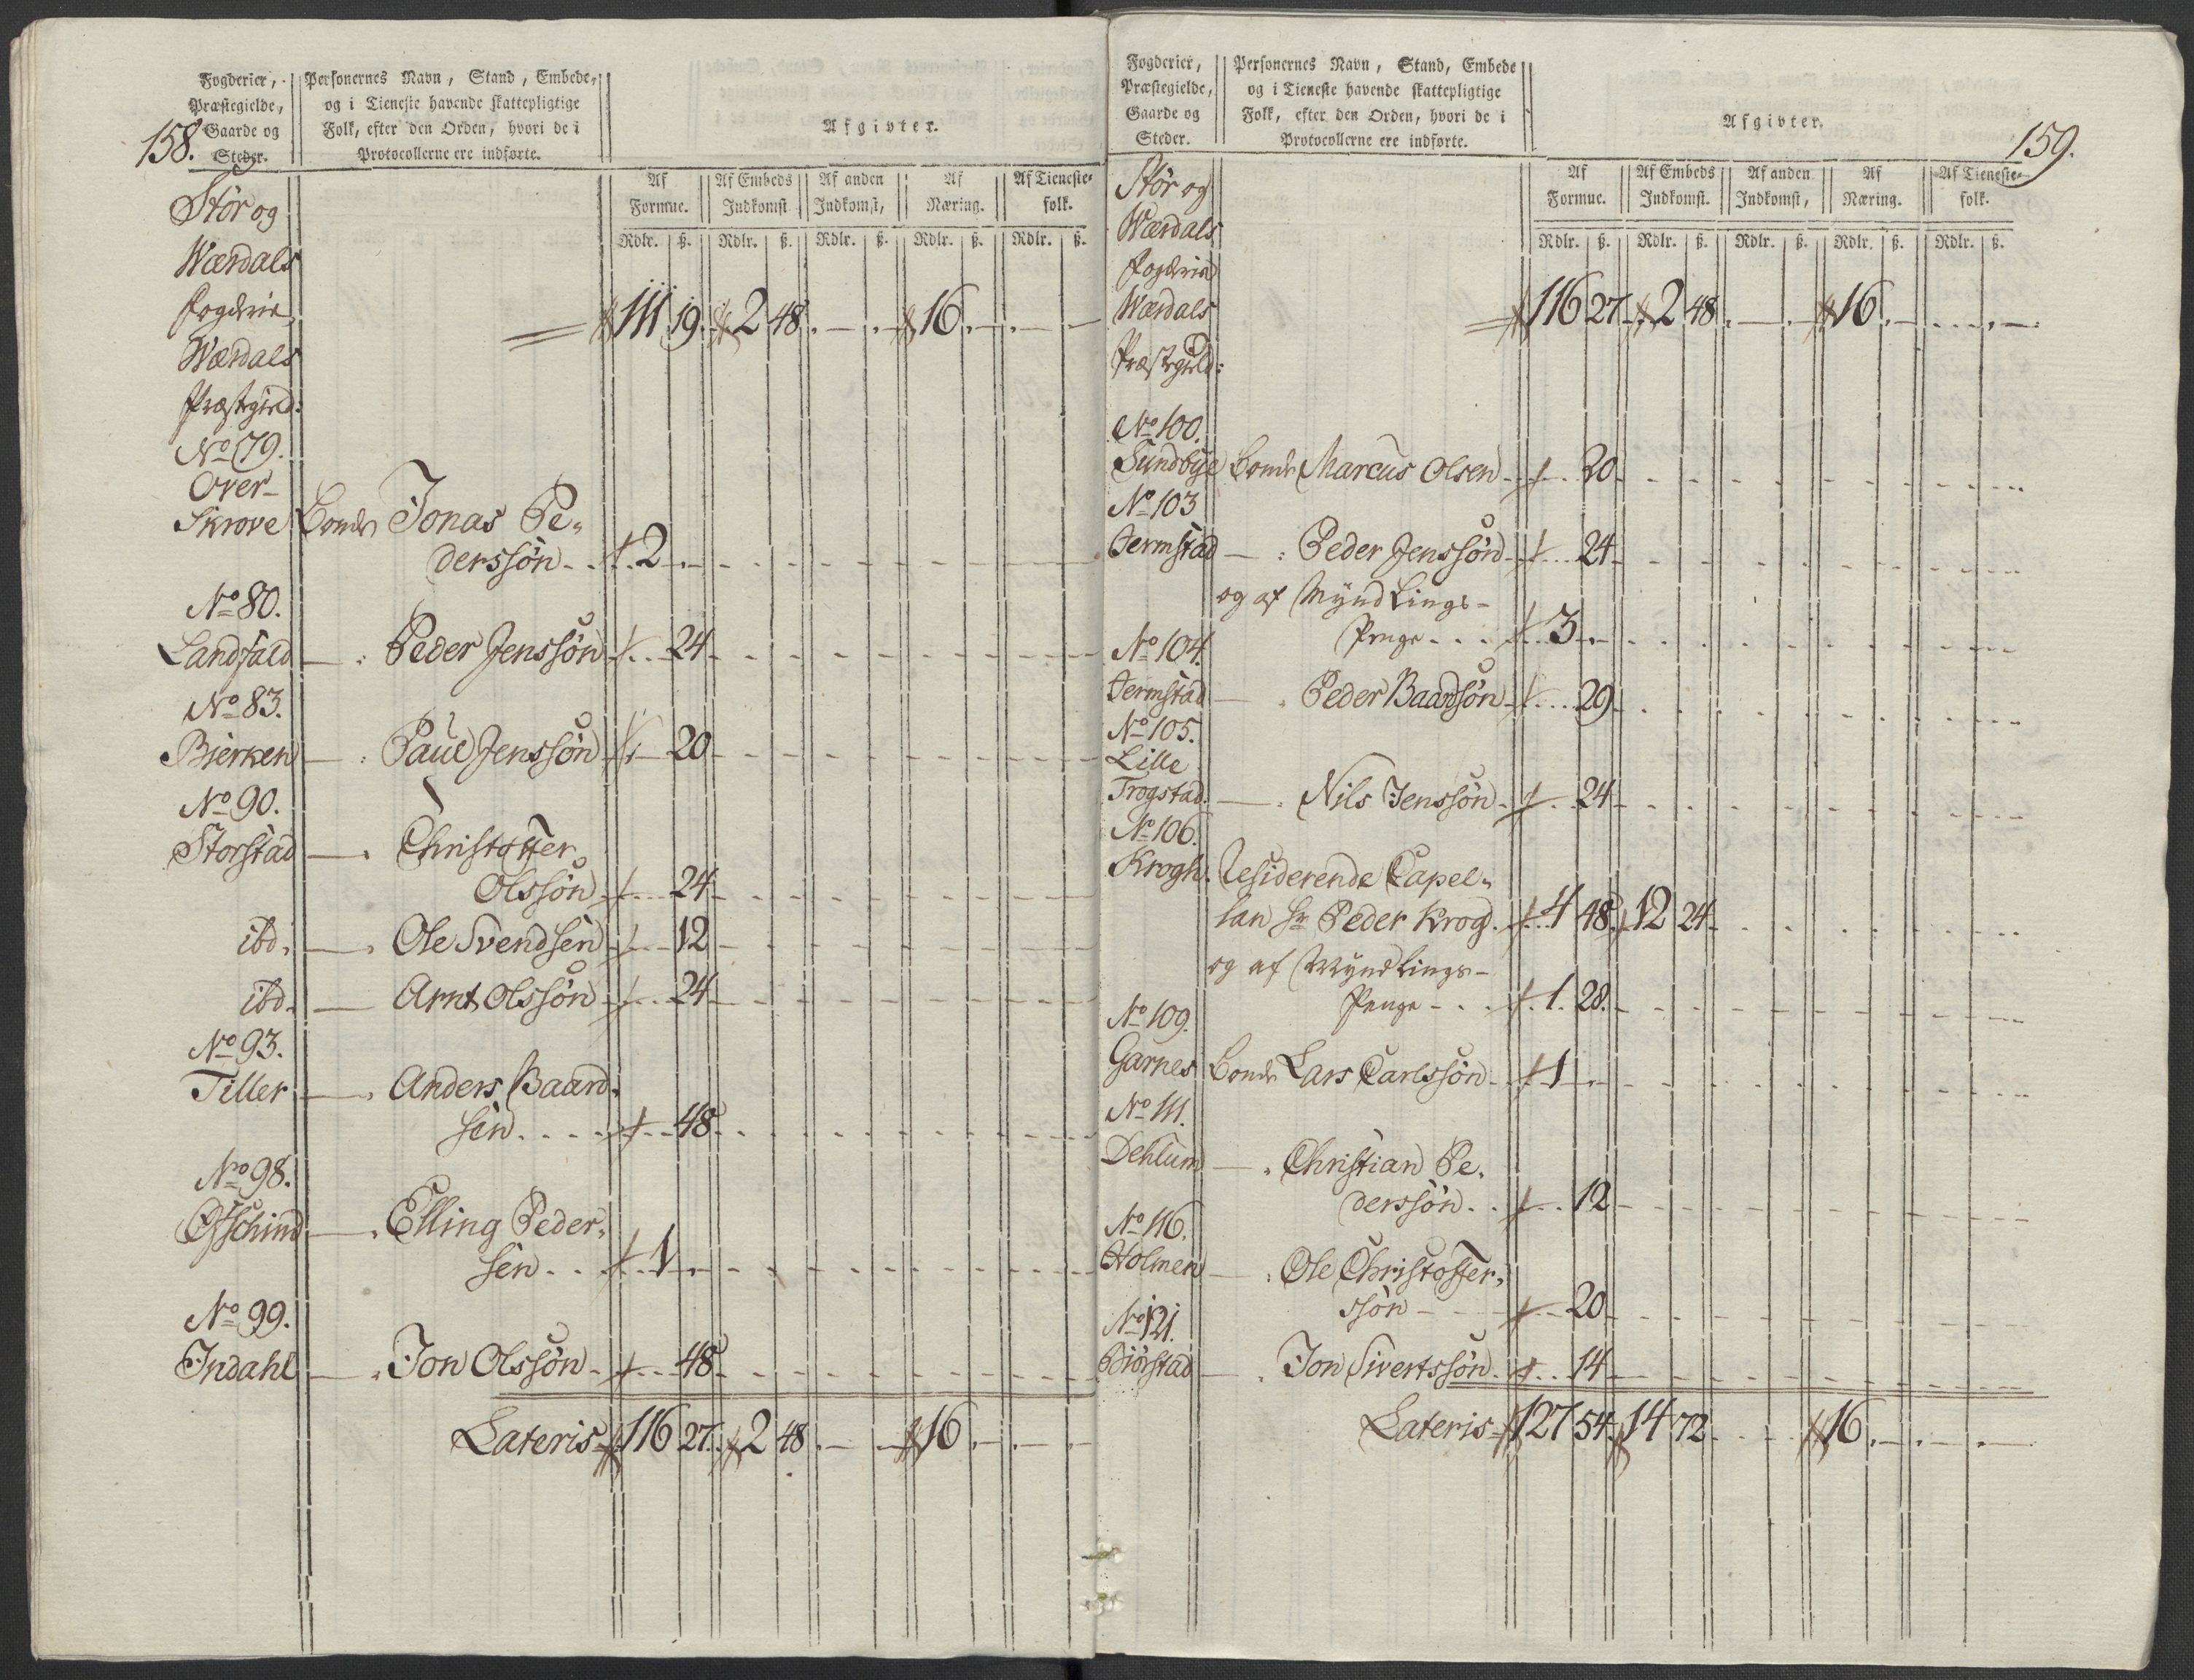 158.
Fogderier,
Præstegielde,
Gaarde og
Steder.
Personernes Navn, Stand, Embede,
og i Tieneste havende skattepligtige
Folk, efter den Orden, hvori de i
Protocollerne ere indførte.
Afgivter.
Af Formue. Af Embeds Indkomst Af anden Indkomst, Af Næring. Af Tieneste-folk.
Rdlr. ß. Rdlr. ß. Rdlr. ß. Rdlr. ß. Rdlr. ß.
Stör og
Wærdals
Fogderie
111 19. 2 48. 16.
Wærdals
Præstegield:
No 79.
Over-
Skrove Bonde Jonas Pe-
derssön 2
No 80.
Landfald — Peder Jenssön 24
No 83.
Bierken — Paul Jenssön 20
No 90.
Storstad — Christoffer
Olssön 24
ibd. — Ole Svendsen 12
ibd. — Arnt Olssön 24
No 93.
Tiller — Anders Baard-
sen 48
No 98.
Östchind — Elling Peder-
sen 1
No 99.
Indahl — Jon Olssön 48
Lateris 116 27. 2 48. 16.
159.
Fogderier,
Præstegielde,
Gaarde og
Steder.
Personernes Navn, Stand, Embede
og i Tieneste havende skattepligtige
Folk, efter den Orden, hvori de i
Protocollerne ere indførte.
Afgivter.
Af Formue. Af Embeds Indkomst. Af anden Indkomst, Af Næring. Af Tieneste-folk.
Rdlr. ß. Rdlr. ß. Rdlr. ß. Rdlr. ß. Rdlr. ß.
Stör og
Wærdals
Fogderie
Wærdals 116 27. 2 48. 16.
Præstegield:
No 100.
Sundbye Bonde Marcus Olsen 20
No 103
Jermstad — Peder Jenssön 24
og af Myndlings-
Penge 3
No 104.
Jermstad — Peder Baardsön 29
No 105.
Lille
Trogstad. — Nils Jenssön 24
No 106.
Krogh. Residerende Capel-
lan Hr Peder Krog 4 48. 12 24
og af Myndlings-
Penge 1. 28.
No 109.
Garnes Bonde Lars Carlssön 1
No 111.
Dehlum — Christian Pe-
derssön 12
No 116.
Holmen — Ole Christoffer-
ssön 20
No 121.
Biörstad — Jon Sivertssön 14
Lateris 127 54. 14 72 16.